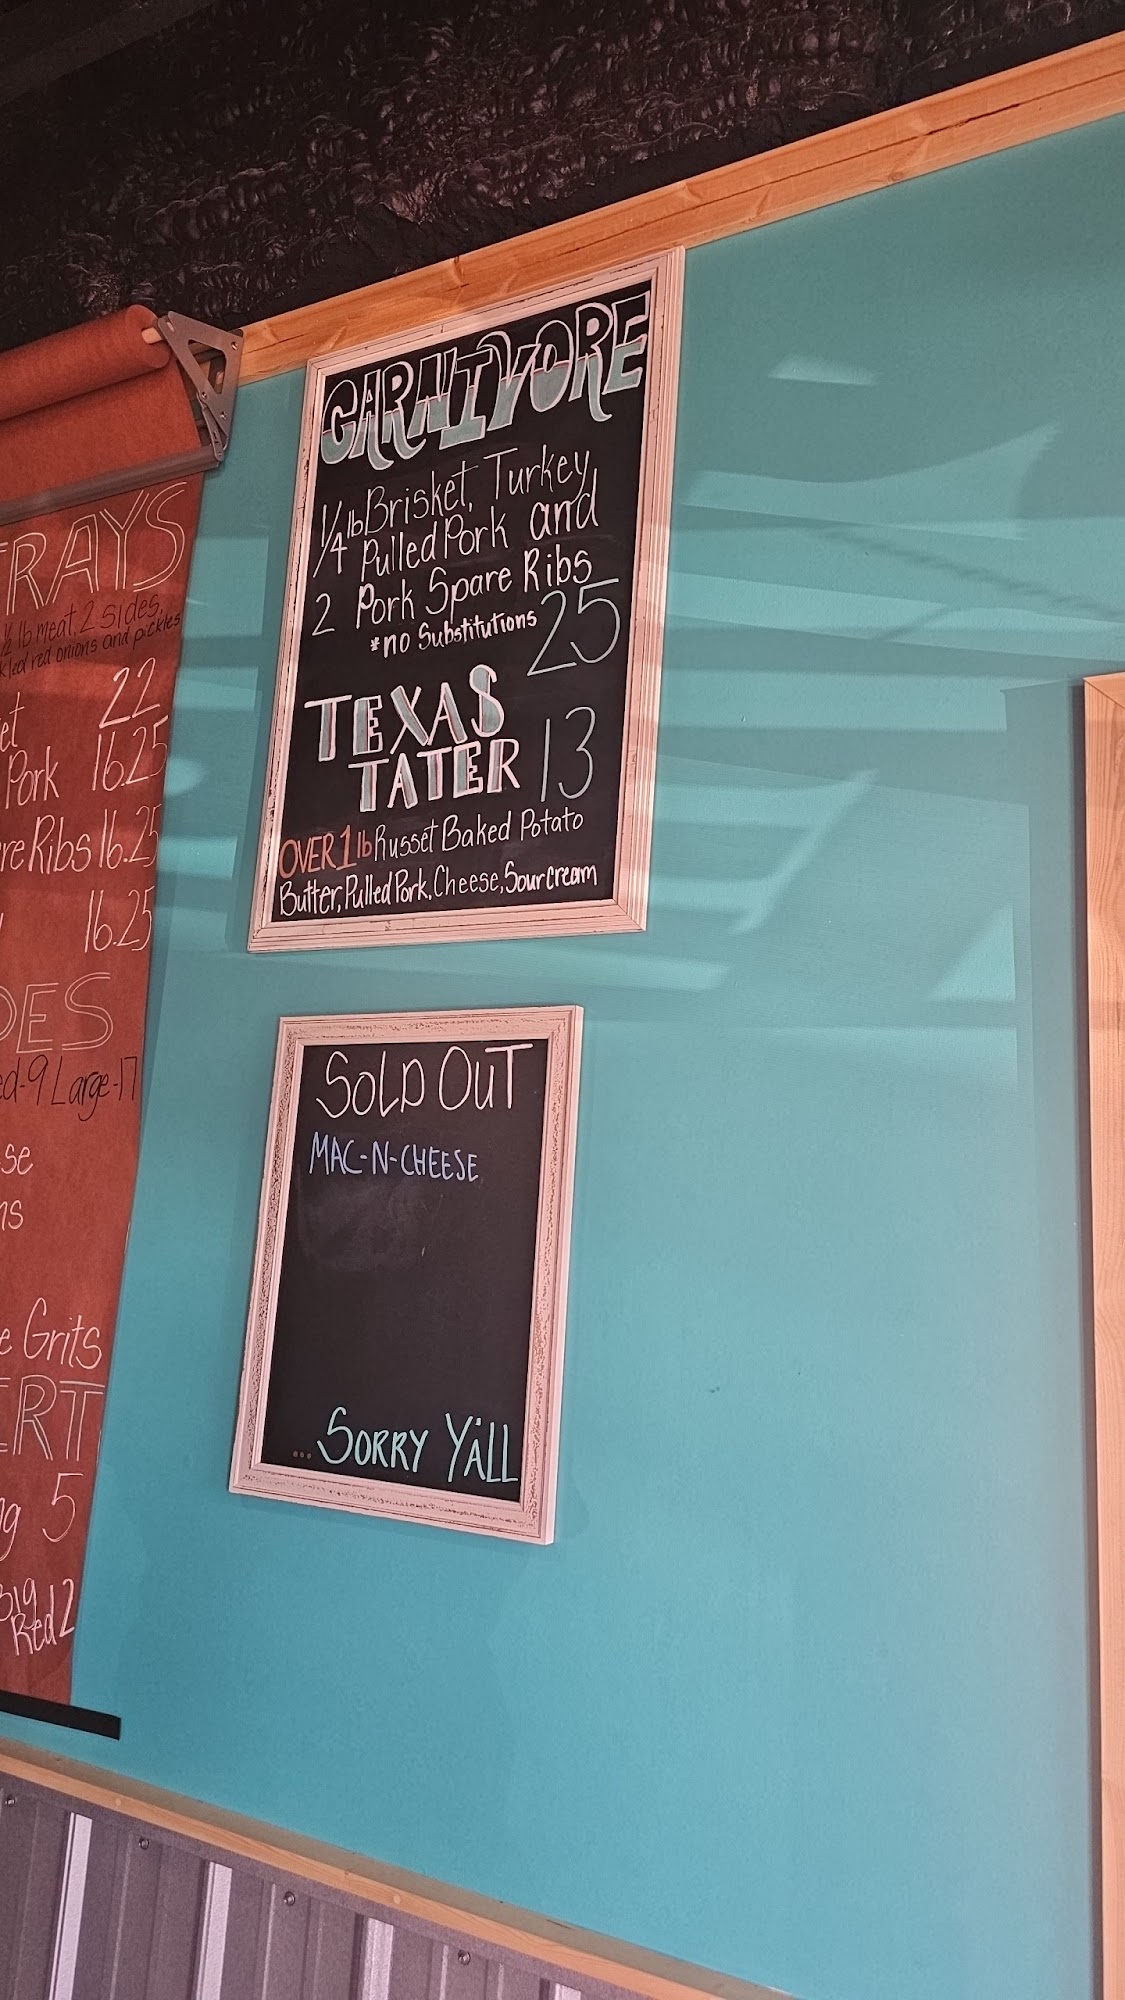 TRAYS
½ lb meat, 2 sides,
red onions and pickles
22
Pork 16.25
Ribs 16.25
16.25
Large-17
Grits
5
Big
Red 2
CARNIVORE
1/4 lb Brisket, Turkey,
Pulled Pork and
2 Pork Spare Ribs
*no Substitutions 25
TEXAS
TATER 13
OVER 1 lb Russet Baked Potato
Butter, Pulled Pork, Cheese, Sour cream
SOLD OUT
MAC-N-CHEESE
... SORRY Y'ALL